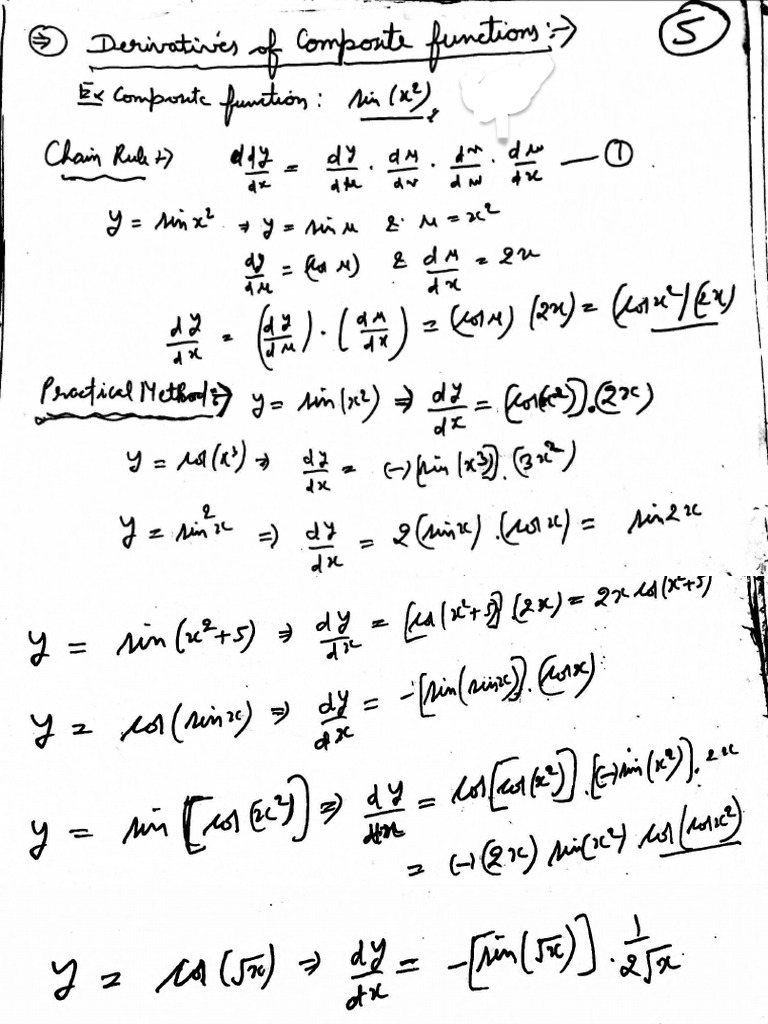 ⇒ Derivatives of Composite functions:→ 5
Ex Composite function: sin(x²)
Chain Rule:→ ddy/dx = dy/du · du/dv · dv/dw · dw/dx — ①
y = sin x² ⇒ y = sin u & u = x²
dy/du = (cos u) & du/dx = 2x
dy/dx = (dy/du) · (du/dx) = (cos u) (2x) = (cos x²)(2x)
Practical Method:→ y = sin(x²) ⇒ dy/dx = [cos(x²)].(2x)
y = cos(x³) ⇒ dy/dx = (-)[sin(x³)].(3x²)
y = sin²x ⇒ dy/dx = 2(sinx).(cosx) = sin2x
y = sin(x²+5) ⇒ dy/dx = [cos(x²+5)].(2x) = 2x cos(x²+5)
y = cos(sinx) ⇒ dy/dx = -[sin(sinx)].(cosx)
y = sin[cos(x²)] ⇒ dy/dx = cos[cos(x²)].[(-)sin(x²)].2x
= (-)(2x) sin(x²) cos(cosx²)
y = cos(√x) ⇒ dy/dx = -[sin(√x)].1/2√x